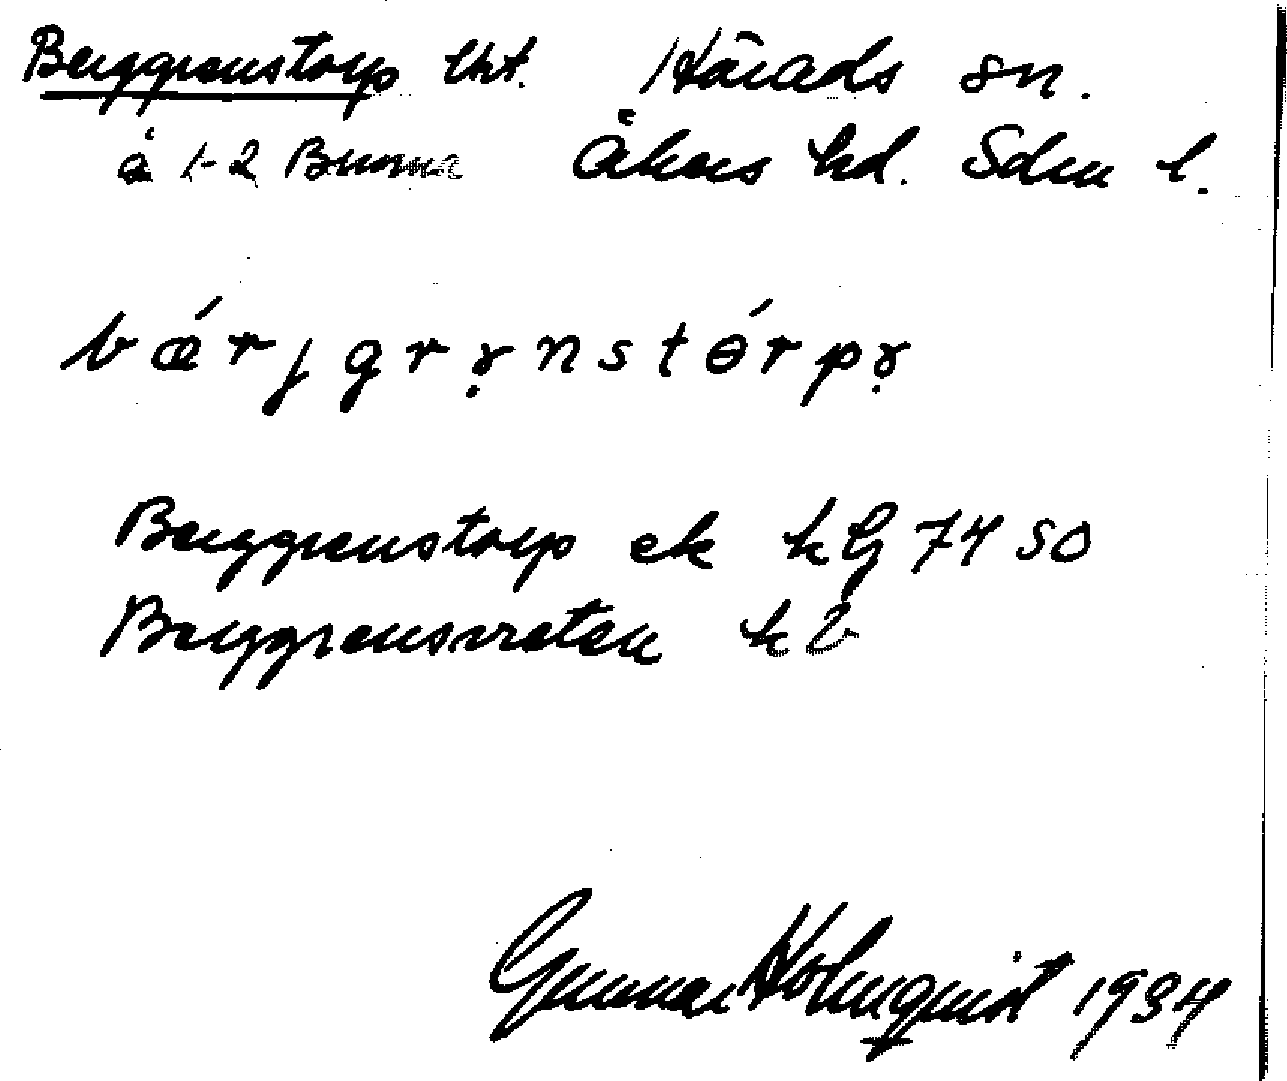 Berggrenstorp lht. Härads sn.
å 1-2 Brunna Åkers hd. Sdm l.
bǽrjgrɤ̣nstɵ́rpɤ̣
Berggrenstorp ek kG 7450
Berggrensvreten k
Gunnar Holmquist 1934